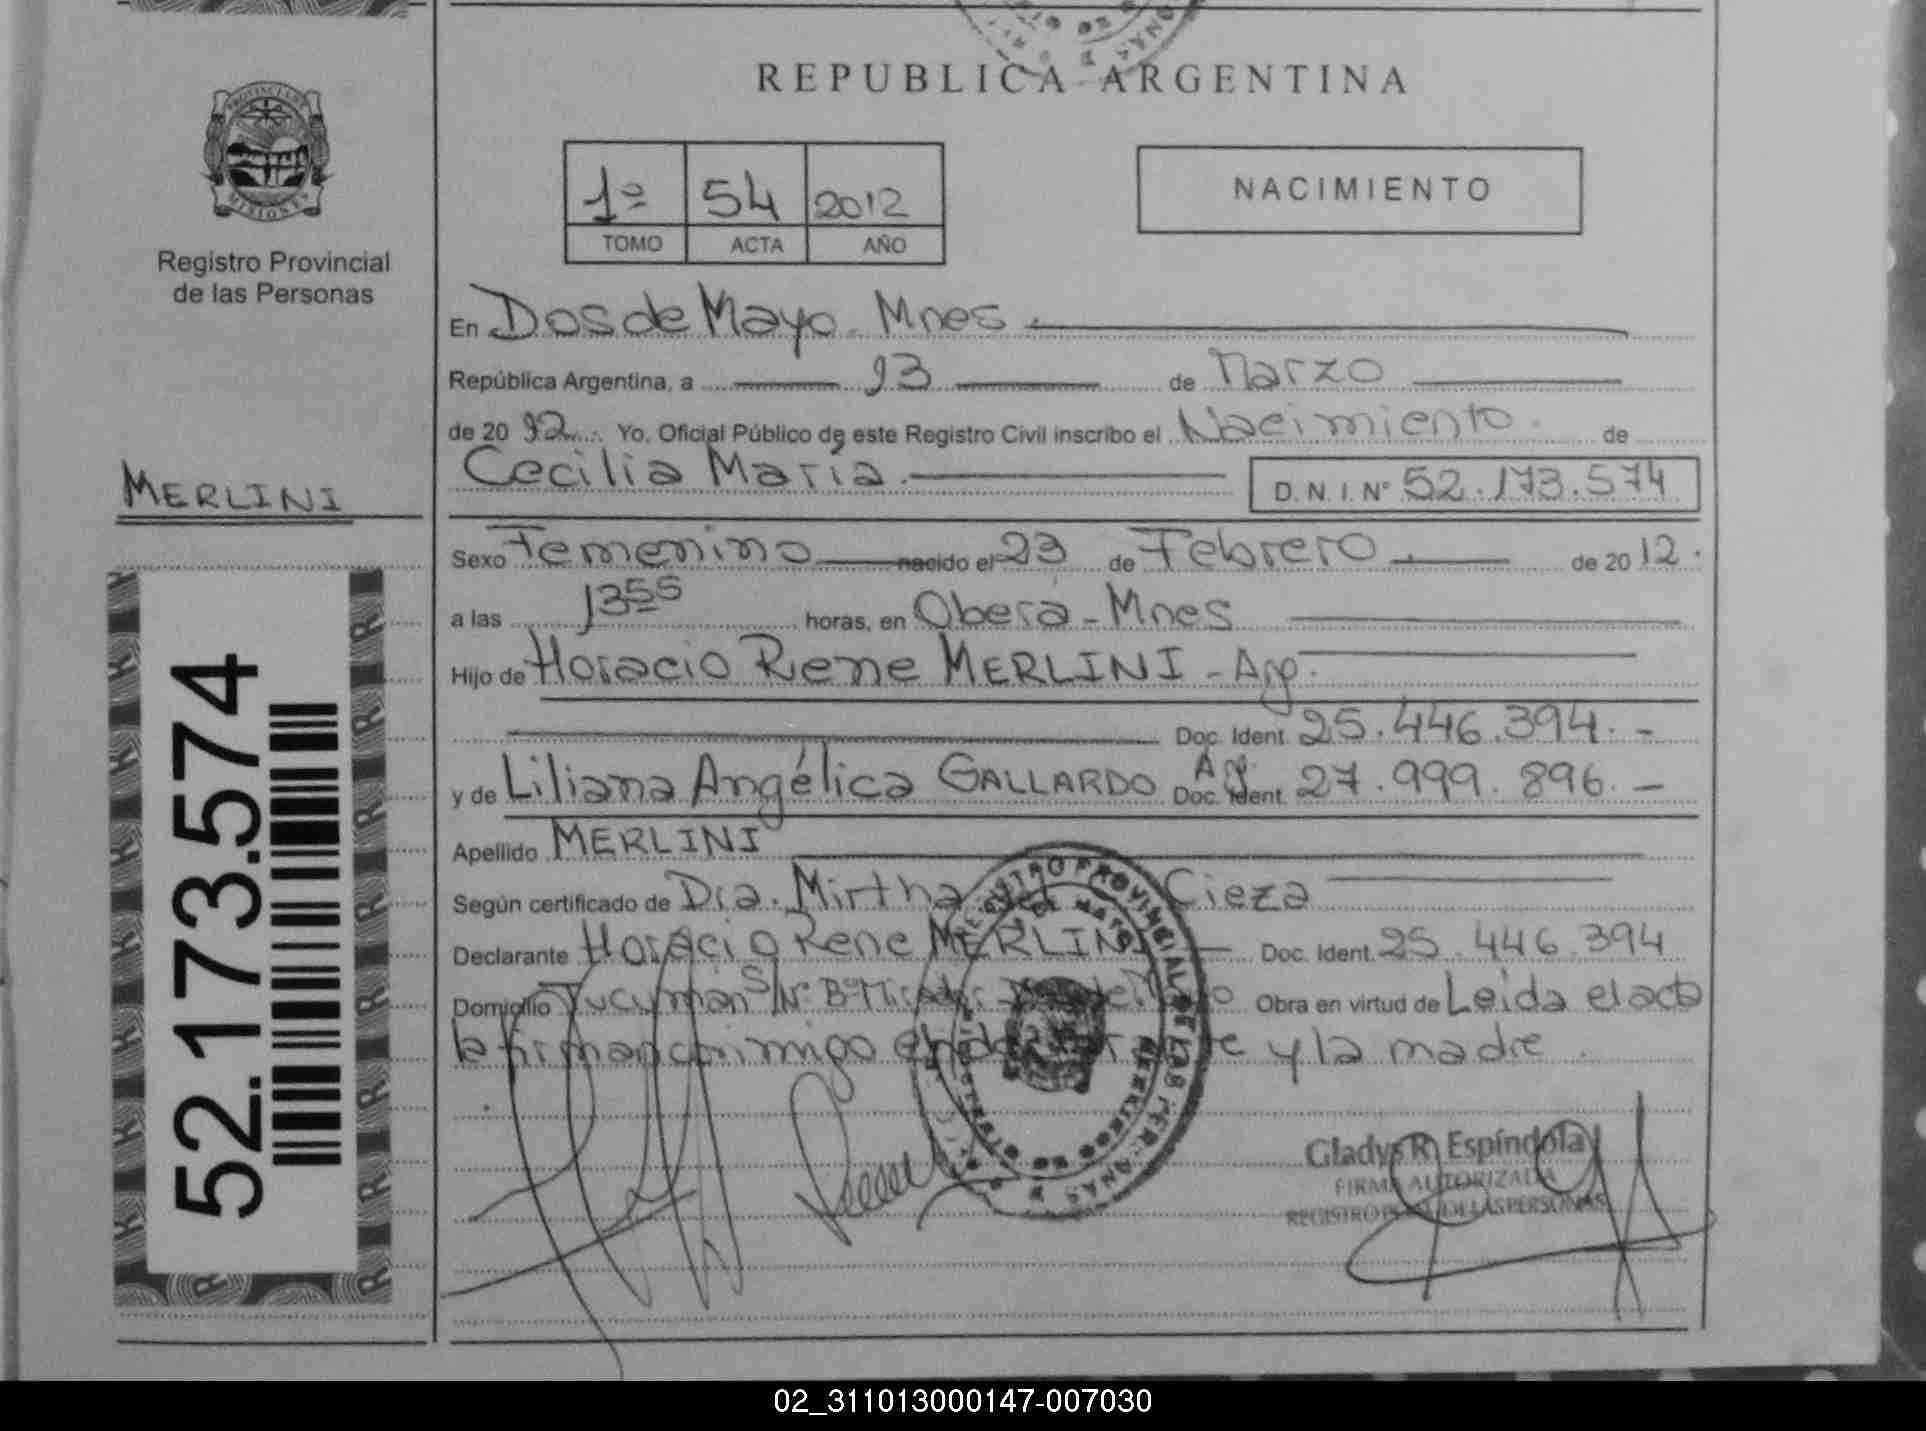 REPUBLICA ARGENTINA
PROVINCIA DE
MISIONES
Registro Provincial
de las Personas
1º 54 2012
TOMO ACTA AÑO
NACIMIENTO
En Dos de Mayo. Mnes
República Argentina, a 13 de Marzo
de 20 12. Yo, Oficial Público de este Registro Civil inscribo el Nacimiento de
Cecilia María. D.N.I. Nº 52.173.574
MERLINI
Sexo Femenino nacido el 23 de Febrero de 20 12.
a las 13 55 horas, en Oberá - Mnes
Hijo de Horacio Rene MERLINI - Arg.
Doc. Ident. 25.446.394. -
y de Liliana Angélica GALLARDO Arg. Doc. Ident. 27.999.896. -
Apellido MERLINI
Según certificado de Dra. Mirtha Cieza
Declarante Horacio Rene MERLINI Doc. Ident. 25.446.394
Domicilio Tucumán S/Nº Bº Obra en virtud de Leida el acta
la firman conmigo el y la madre.
52.173.574
REGISTRO PROVINCIAL DE LAS PERSONAS
Gladys R. Espíndola
FIRMA AUTORIZADA
REGISTRO PCIAL. DE LAS PERSONAS
02_311013000147-007030